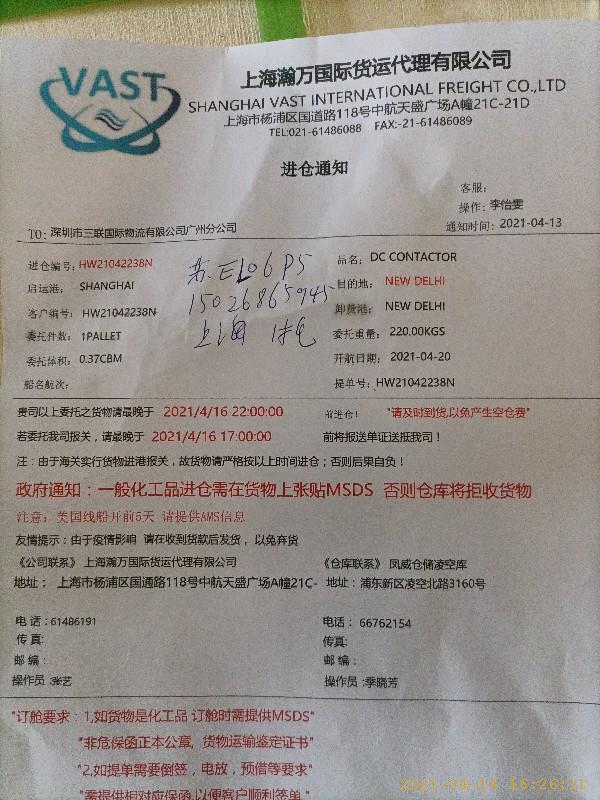 VAST
上海瀚万国际货运代理有限公司
SHANGHAI VAST INTERNATIONAL FREIGHT CO.,LTD
上海市杨浦区国道路118号中航天盛广场A幢21C-21D
TEL:021-61486088 FAX:-21-61486089
进仓通知
客服:
操作: 李怡雯
TO: 深圳市三联国际物流有限公司广州分公司
通知时间: 2021-04-13
进仓编号: HW21042238N
品名: DC CONTACTOR
启运港: SHANGHAI
目的地: NEW DELHI
客户编号: HW21042238N
卸货港: NEW DELHI
委托件数: 1PALLET
委托重量: 220.00KGS
委托体积: 0.37CBM
开航日期: 2021-04-20
船名航次:
提单号: HW21042238N
苏EL06P5
15026865945
上海
贵司以上委托之货物请最晚于 2021/4/16 22:00:00 前进仓! "请及时到货,以免产生空仓费"
若委托我司报关,请最晚于 2021/4/16 17:00:00 前将报送单证送抵我司!
注:由于海关实行货物进港报关,故货物请严格按以上时间进仓;否则后果自负!
政府通知:一般化工品进仓需在货物上张贴MSDS 否则仓库将拒收货物
注意: 美国线船开前5天 请提供AMS信息
友情提示:由于疫情影响 请在收到货款后发货,以免弃货
《公司联系》上海瀚万国际货运代理有限公司
《仓库联系》凤威仓储凌空库
地址: 上海市杨浦区国通路118号中航天盛广场A幢21C-
地址:浦东新区凌空北路3160号
电话:61486191
电话: 66762154
传真:
传真:
邮编:
邮编:
操作员:张艺
操作员:季晓芳
"订舱要求:1,如货物是化工品 订舱时需提供MSDS"
"非危保函正本公章,货物运输鉴定证书"
"2.如提单需要倒签,电放,预借等要求"
"需提供相对应保函,以便客户顺利签单"
2021-04-14 16:26:21